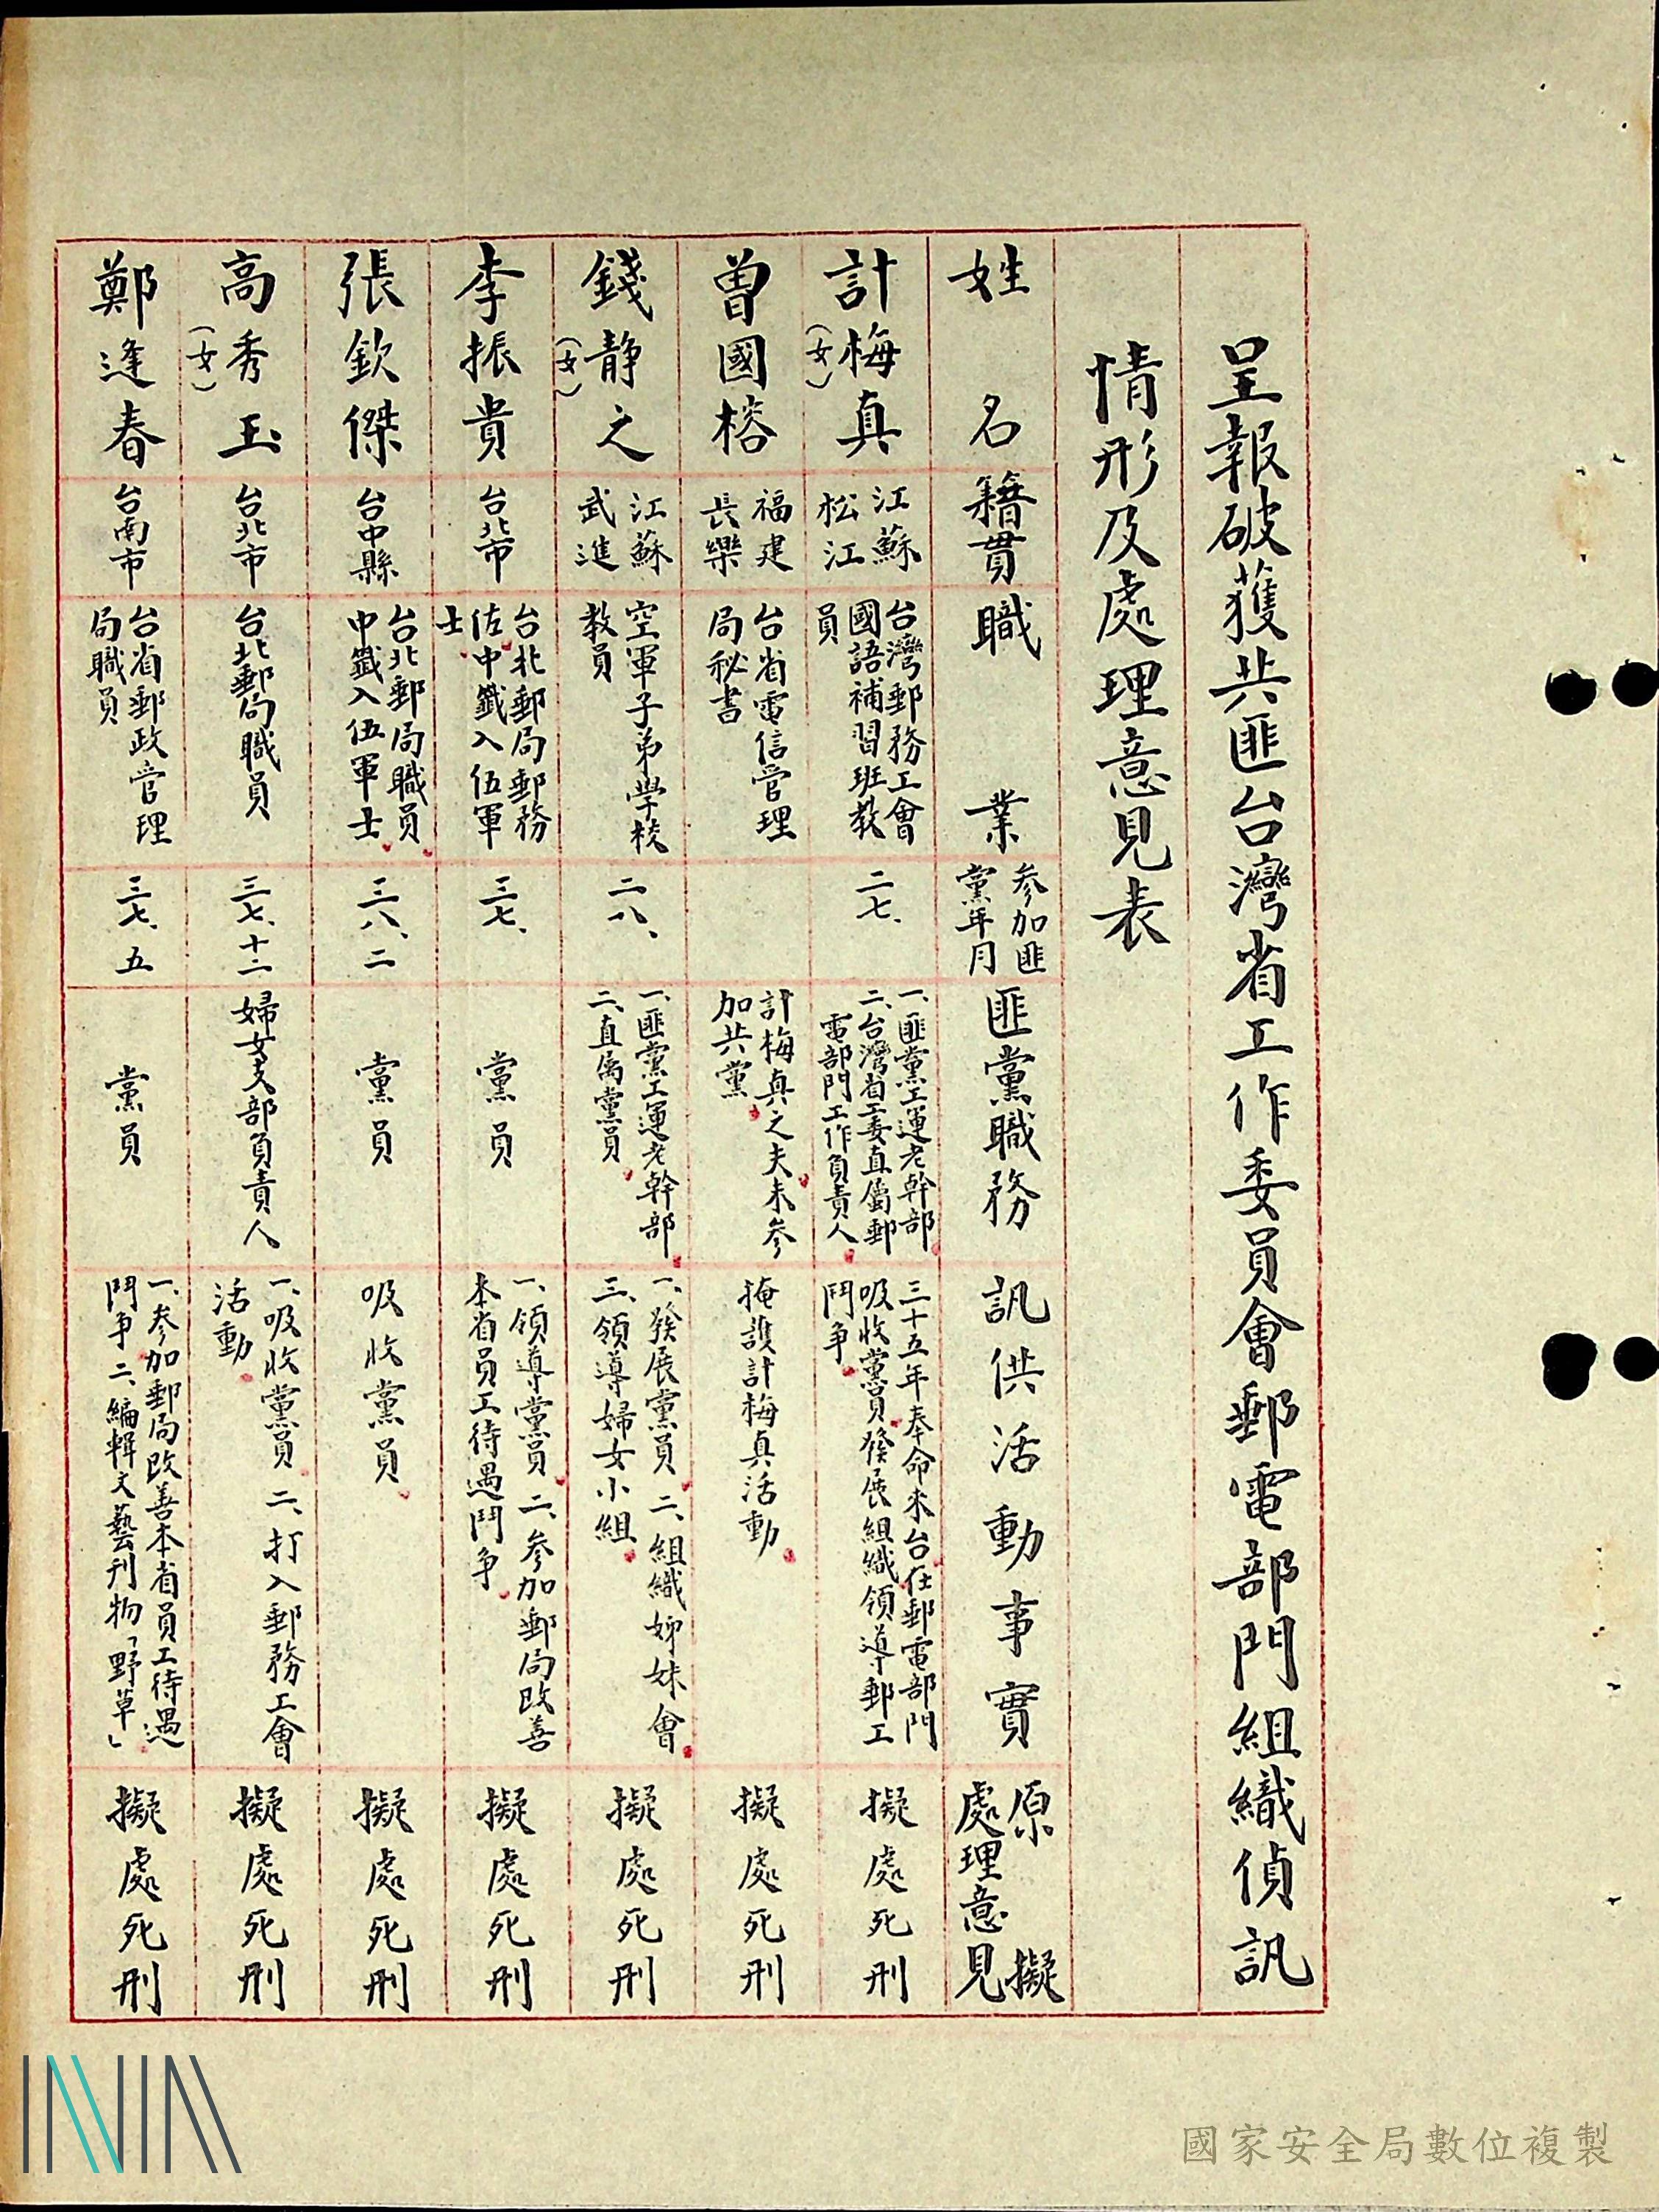 呈報破獲共匪台灣省工作委員會郵電部門組織偵訊
情形及處理意見表
姓名
籍貫
職業
參加匪
黨年月
匪黨職務
訊供活動事實
原擬
處理意見
計梅真
(女)
江蘇
松江
台灣郵務工會
國語補習班教
員
二七、
一、匪黨工運老幹部
二、台灣省工委直屬郵
電部門工作負責人
三十五年奉命來台在郵電部門
吸收黨員發展組織領導郵工
鬥爭
擬處死刑
曾國榕
福建
長樂
台省電信管理
局秘書
計梅真之夫未參
加共黨
掩護計梅真活動
擬處死刑
錢静之
(女)
江蘇
武進
空軍子弟學校
教員
二八、
一、匪黨工運老幹部
二、直屬黨員
一、發展黨員 二、組織姊妹會
三、領導婦女小組
擬處死刑
李振貴
台北市
台北郵局郵務
佐中籤入伍軍
士
三七、
黨員
一、領導黨員 二、參加郵局改善
本省員工待遇鬥爭
擬處死刑
張欽傑
台中縣
台北郵局職員
中籤入伍軍士
三八、二
黨員
吸收黨員
擬處死刑
高秀玉
(女)
台北市
台北郵局職員
三七、十二
婦女支部負責人
一、吸收黨員 二、打入郵務工會
活動
擬處死刑
鄭逢春
台南市
台省郵政管理
局職員
三七、五
黨員
一、參加郵局改善本省員工待遇
鬥爭 二、編輯文藝刊物「野草」
擬處死刑
國家安全局數位複製